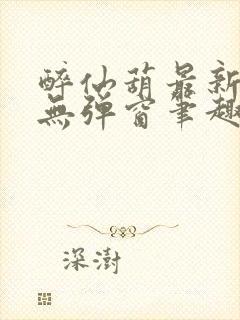 醉仙葫最新
無彈窗筆趣
深澍